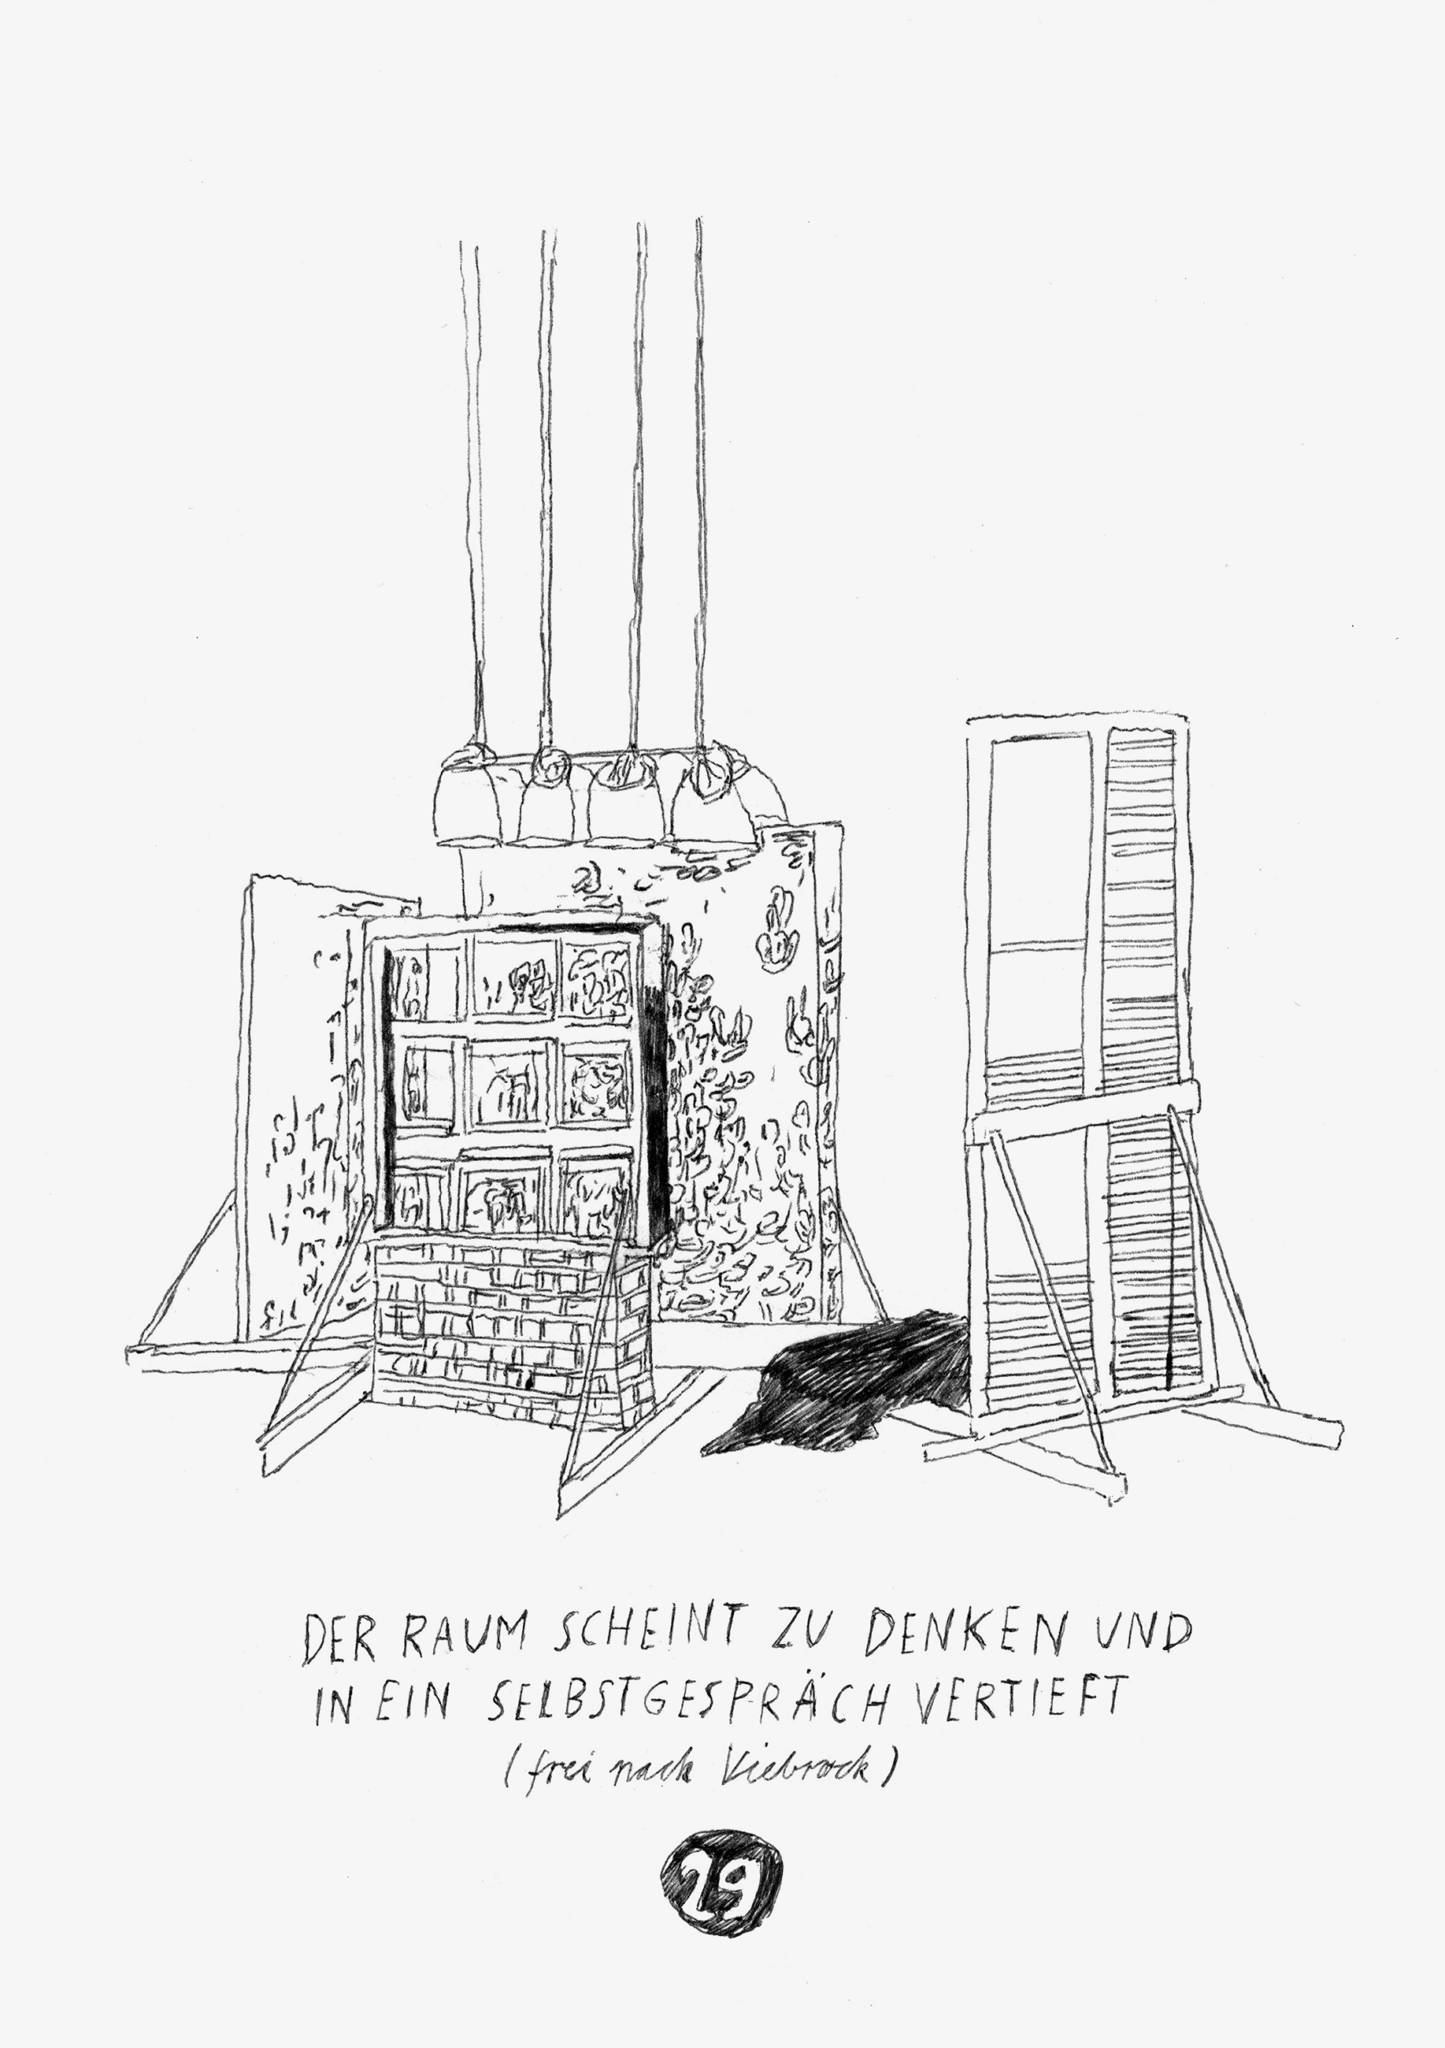 DER RAUM SCHEINT ZU DENKEN UND
IN EIN SELBSTGESPRÄCH VERTIEFT
(frei nach Viebrock)
29